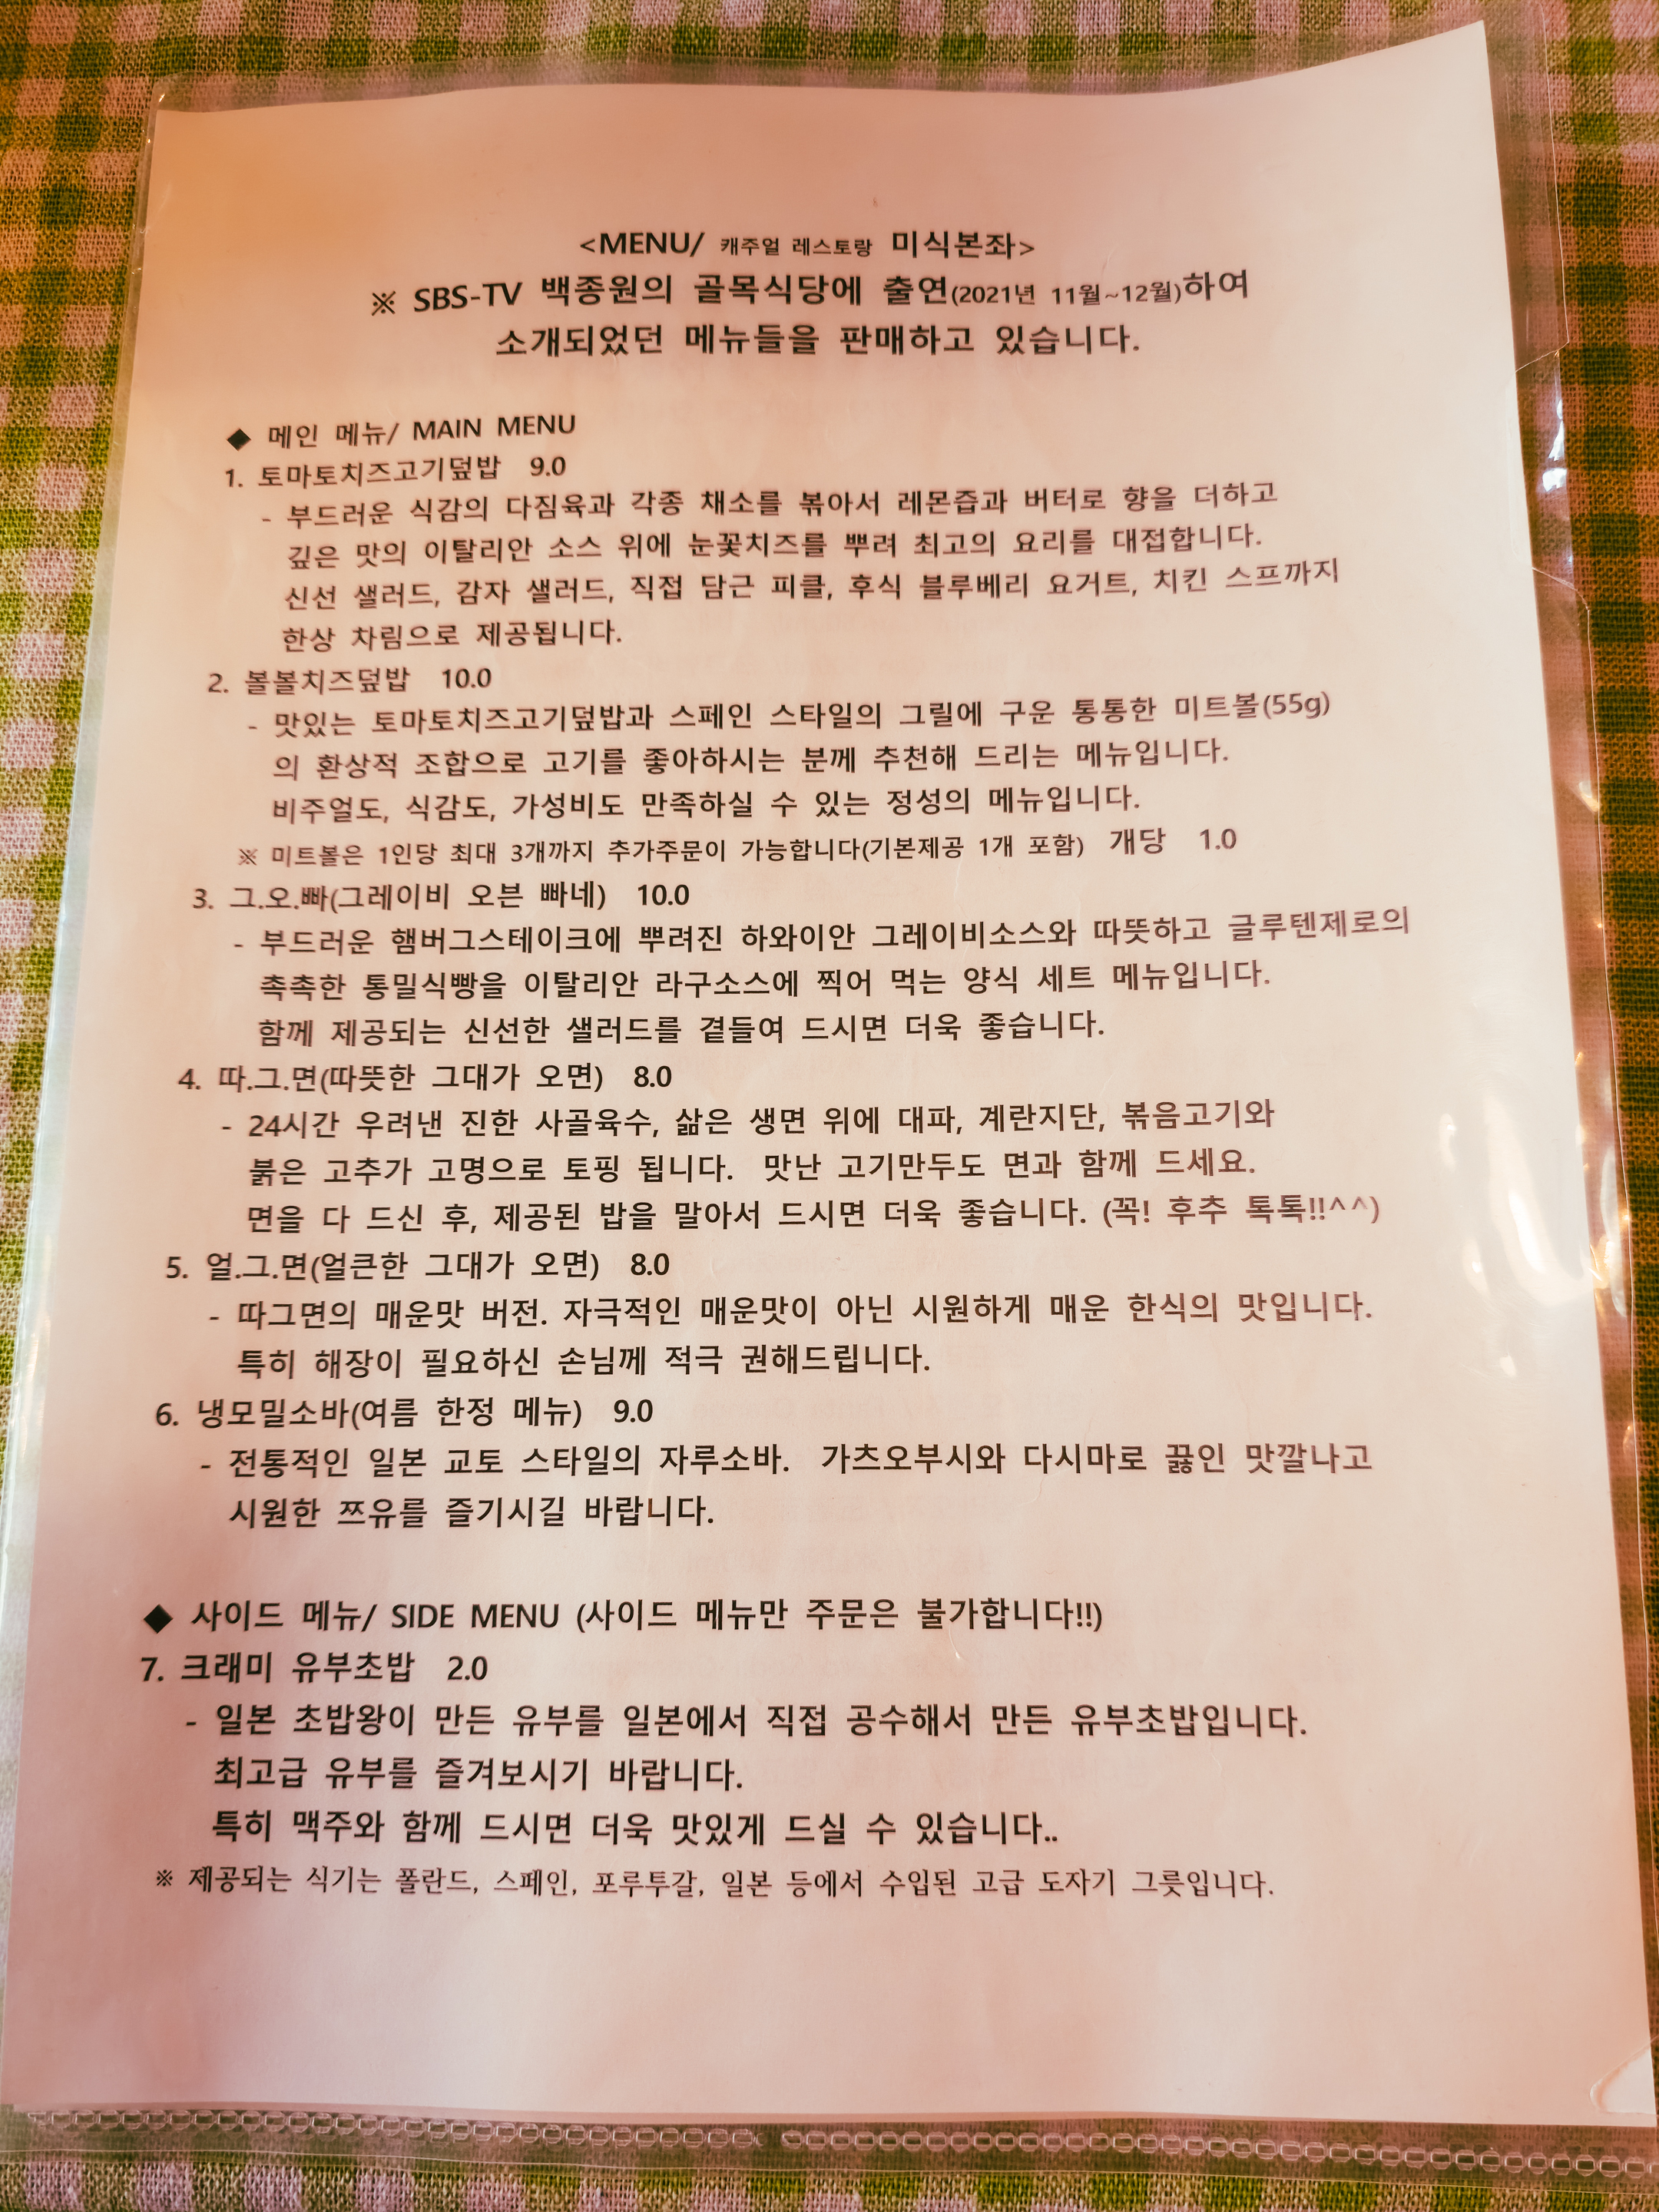 <MENU/ 캐주얼 레스토랑 미식본좌>
※ SBS-TV 백종원의 골목식당에 출연(2021년 11월~12월)하여
소개되었던 메뉴들을 판매하고 있습니다.
◆ 메인 메뉴/ MAIN MENU
1. 토마토치즈고기덮밥 9.0
- 부드러운 식감의 다짐육과 각종 채소를 볶아서 레몬즙과 버터로 향을 더하고
깊은 맛의 이탈리안 소스 위에 눈꽃치즈를 뿌려 최고의 요리를 대접합니다.
신선 샐러드, 감자 샐러드, 직접 담근 피클, 후식 블루베리 요거트, 치킨 스프까지
한상 차림으로 제공됩니다.
2. 볼볼치즈덮밥 10.0
- 맛있는 토마토치즈고기덮밥과 스페인 스타일의 그릴에 구운 통통한 미트볼(55g)
의 환상적 조합으로 고기를 좋아하시는 분께 추천해 드리는 메뉴입니다.
비주얼도, 식감도, 가성비도 만족하실 수 있는 정성의 메뉴입니다.
※ 미트볼은 1인당 최대 3개까지 추가주문이 가능합니다(기본제공 1개 포함) 개당 1.0
3. 그.오.빠(그레이비 오븐 빠네) 10.0
- 부드러운 햄버그스테이크에 뿌려진 하와이안 그레이비소스와 따뜻하고 글루텐제로의
촉촉한 통밀식빵을 이탈리안 라구소스에 찍어 먹는 양식 세트 메뉴입니다.
함께 제공되는 신선한 샐러드를 곁들여 드시면 더욱 좋습니다.
4. 따.그.면(따뜻한 그대가 오면) 8.0
- 24시간 우려낸 진한 사골육수, 삶은 생면 위에 대파, 계란지단, 볶음고기와
붉은 고추가 고명으로 토핑 됩니다. 맛난 고기만두도 면과 함께 드세요.
면을 다 드신 후, 제공된 밥을 말아서 드시면 더욱 좋습니다. (꼭! 후추 톡톡!!^^)
5. 얼.그.면(얼큰한 그대가 오면) 8.0
- 따그면의 매운맛 버전. 자극적인 매운맛이 아닌 시원하게 매운 한식의 맛입니다.
특히 해장이 필요하신 손님께 적극 권해드립니다.
6. 냉모밀소바(여름 한정 메뉴) 9.0
- 전통적인 일본 교토 스타일의 자루소바. 가츠오부시와 다시마로 끓인 맛깔나고
시원한 쯔유를 즐기시길 바랍니다.
◆ 사이드 메뉴/ SIDE MENU (사이드 메뉴만 주문은 불가합니다!!)
7. 크래미 유부초밥 2.0
- 일본 초밥왕이 만든 유부를 일본에서 직접 공수해서 만든 유부초밥입니다.
최고급 유부를 즐겨보시기 바랍니다.
특히 맥주와 함께 드시면 더욱 맛있게 드실 수 있습니다..
※ 제공되는 식기는 폴란드, 스페인, 포루투갈, 일본 등에서 수입된 고급 도자기 그릇입니다.